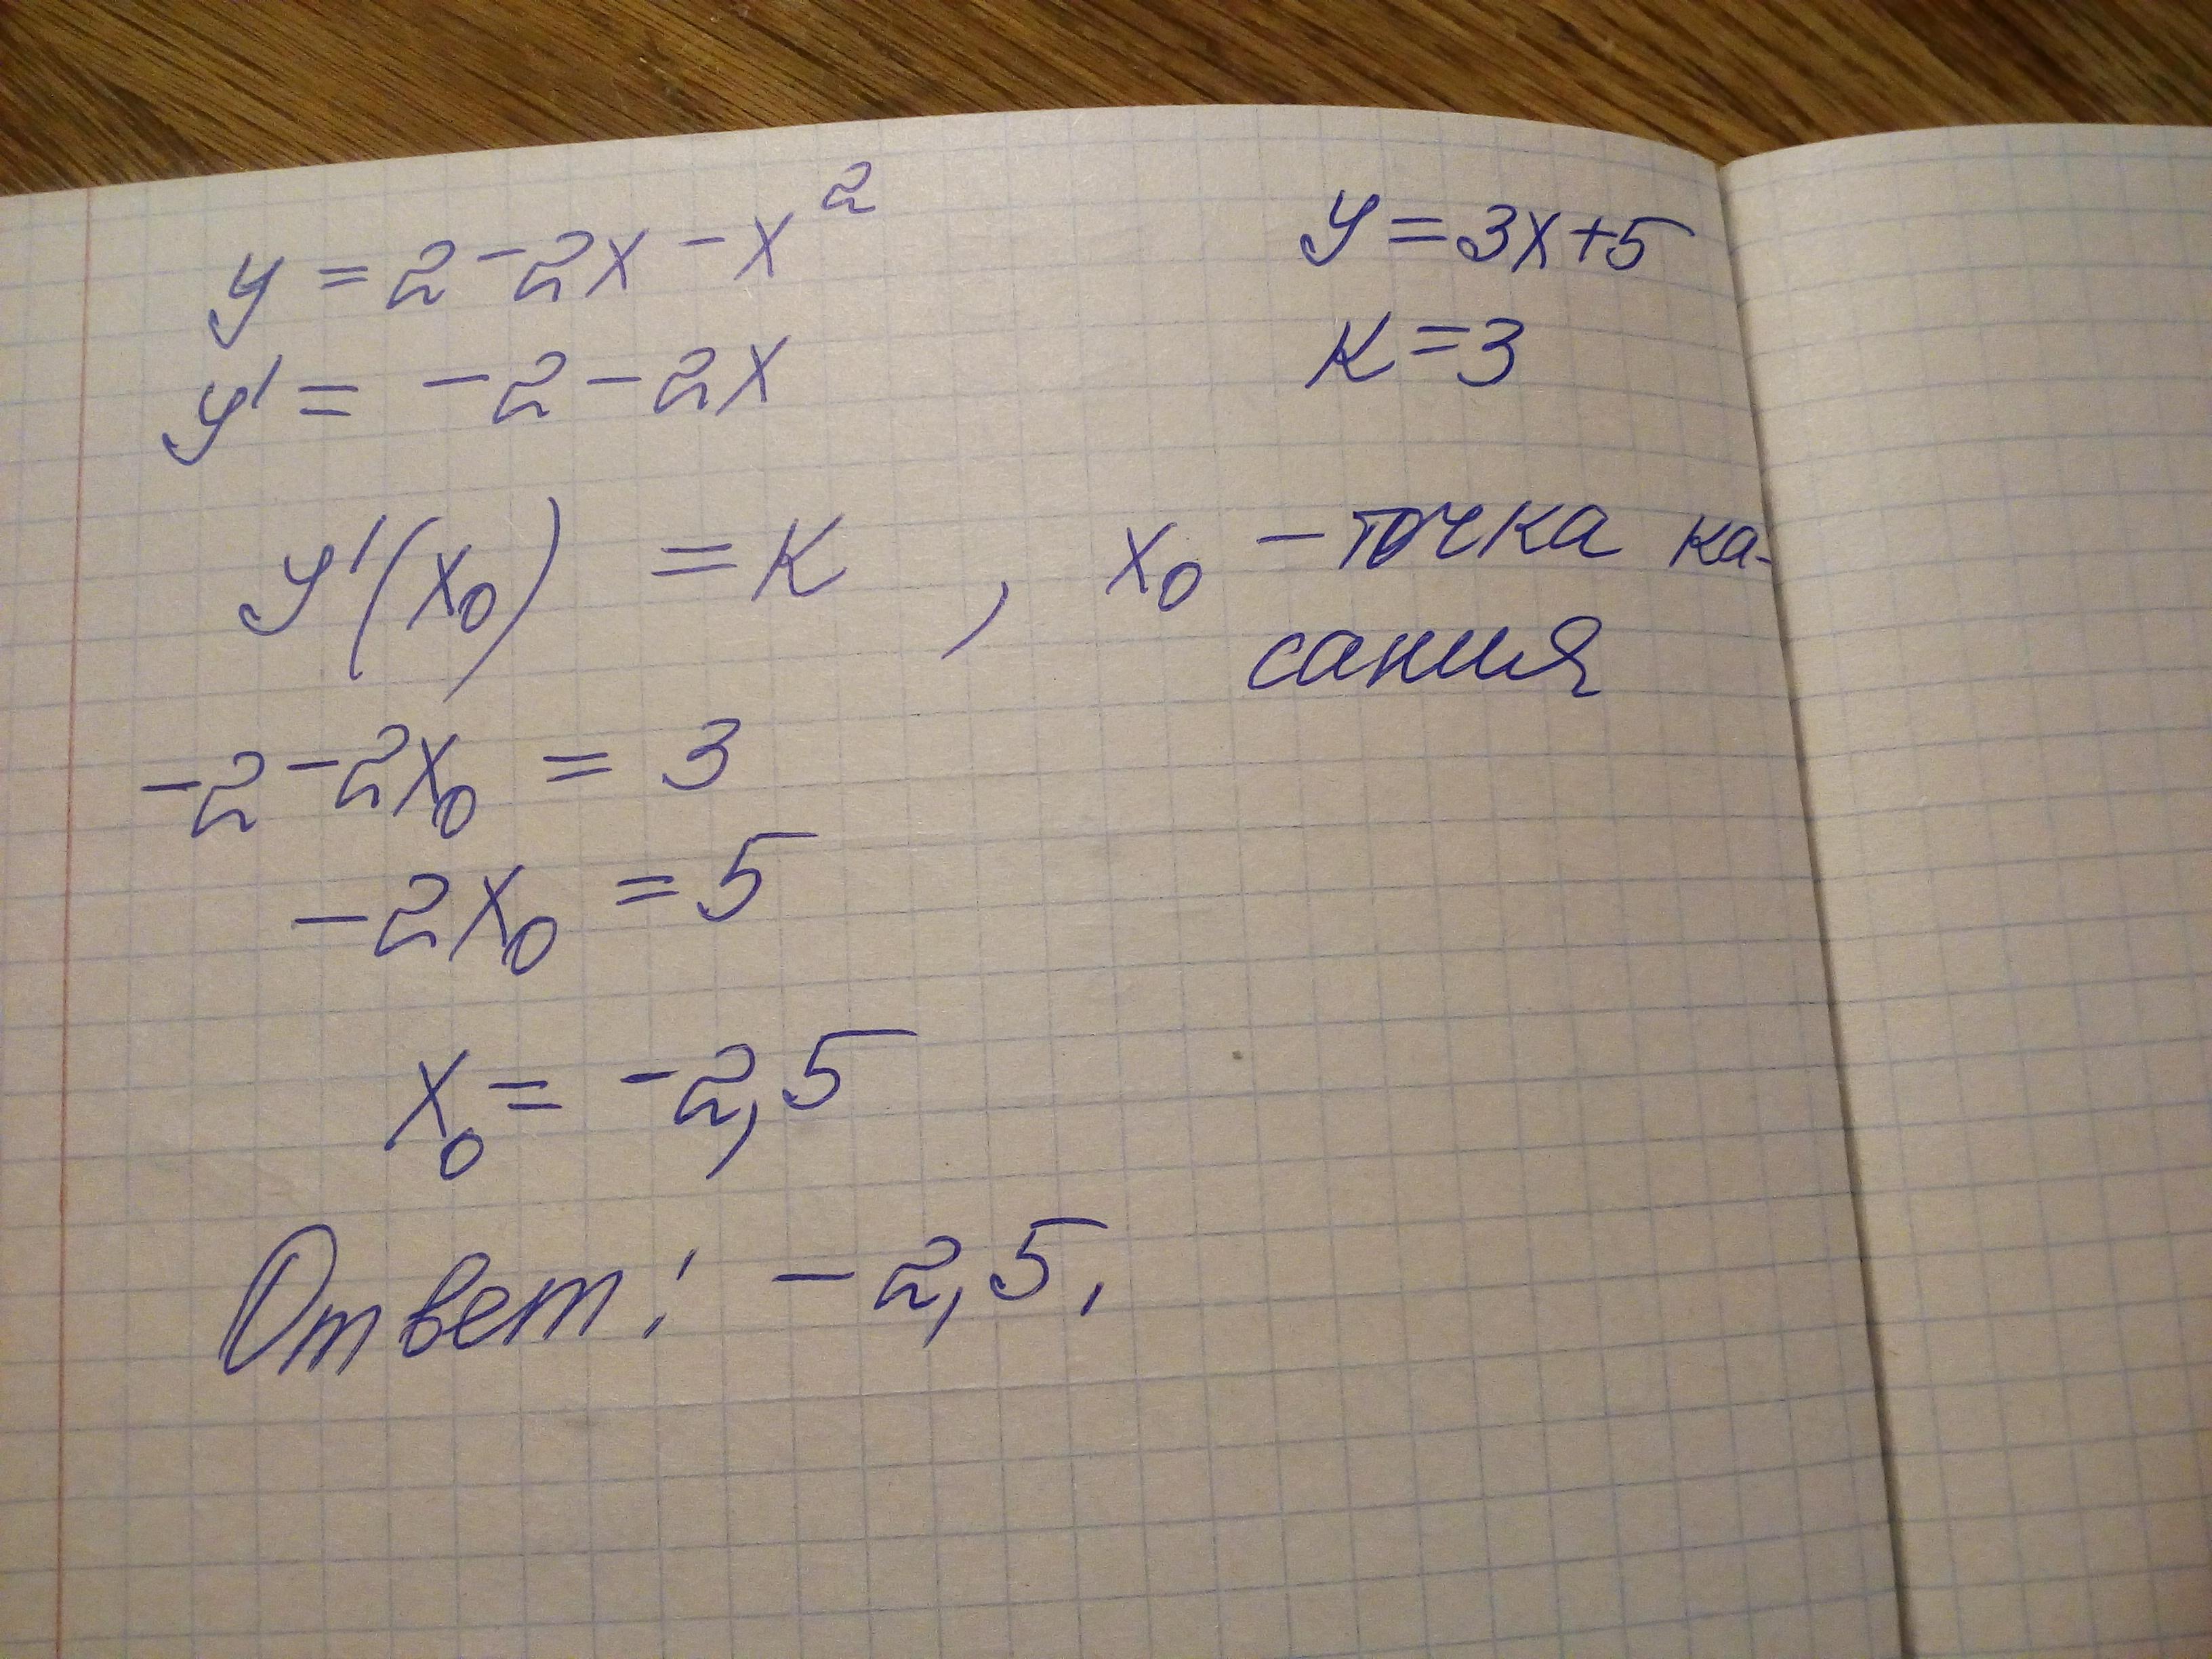 y = 2 - 2x - x²
y = 3x + 5
y' = -2 - 2x
к = 3
y'(x₀) = к , x₀ - точка ка-
сания
-2 - 2x₀ = 3
-2x₀ = 5
x₀ = -2,5
Ответ: -2,5.